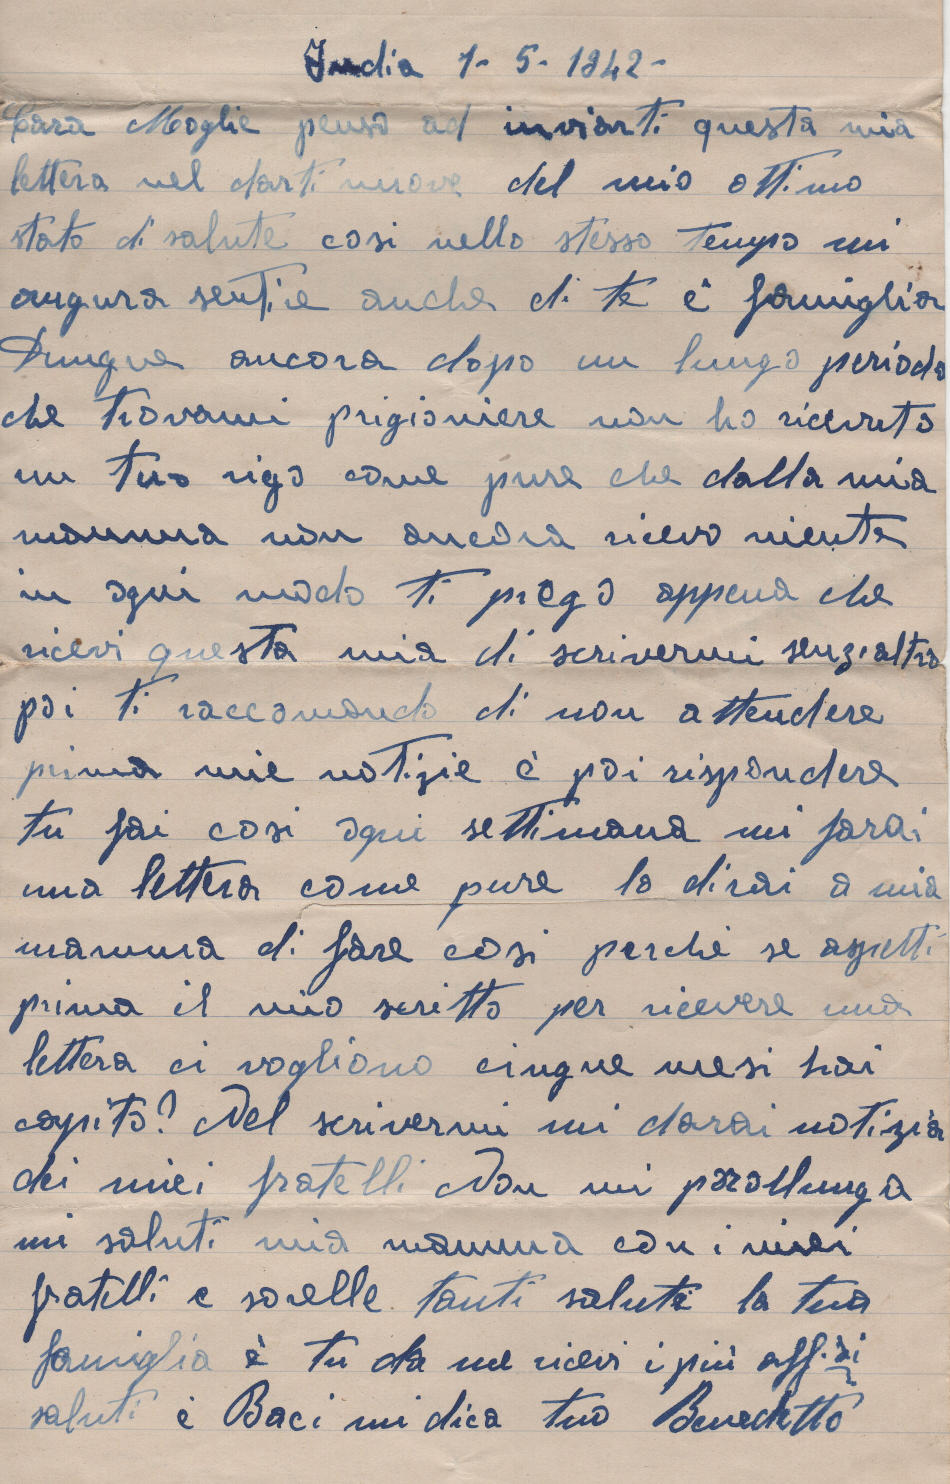 India 1- 5- 1942-
Cara Moglie penso ad inviarti questa mia
lettera nel darti nuove del mio ottimo
stato di salute cosi nello stesso tempo mi
augura sentire anche di te è famiglia
Dunque ancora dopo un lungo periodo
che trovami prigioniere non ho ricevuto
un tuo rigo come pure che dalla mia
mamma non ancora ricevo niente
in ogni modo ti prego appena che
ricevi questa mia di scrivermi senz'altro
poi ti raccomando di non attendere
prima mie notizie è poi rispondere
tu fai cosi ogni settimana mi farai
una lettera come pure lo dirai a mia
mamma di fare cosi perchè se aspetti
prima il mio scritto per ricevere una
lettera ci vogliono cinque mesi hai
capito? Nel scrivermi mi darai notizia
dei miei fratelli Non mi prollunga
mi saluti mia mamma con i miei
fratelli e sorelle tanti salute la tua
famiglia è tu da me ricevi i più aff.si
saluti è Baci mi dica tuo Benedetto